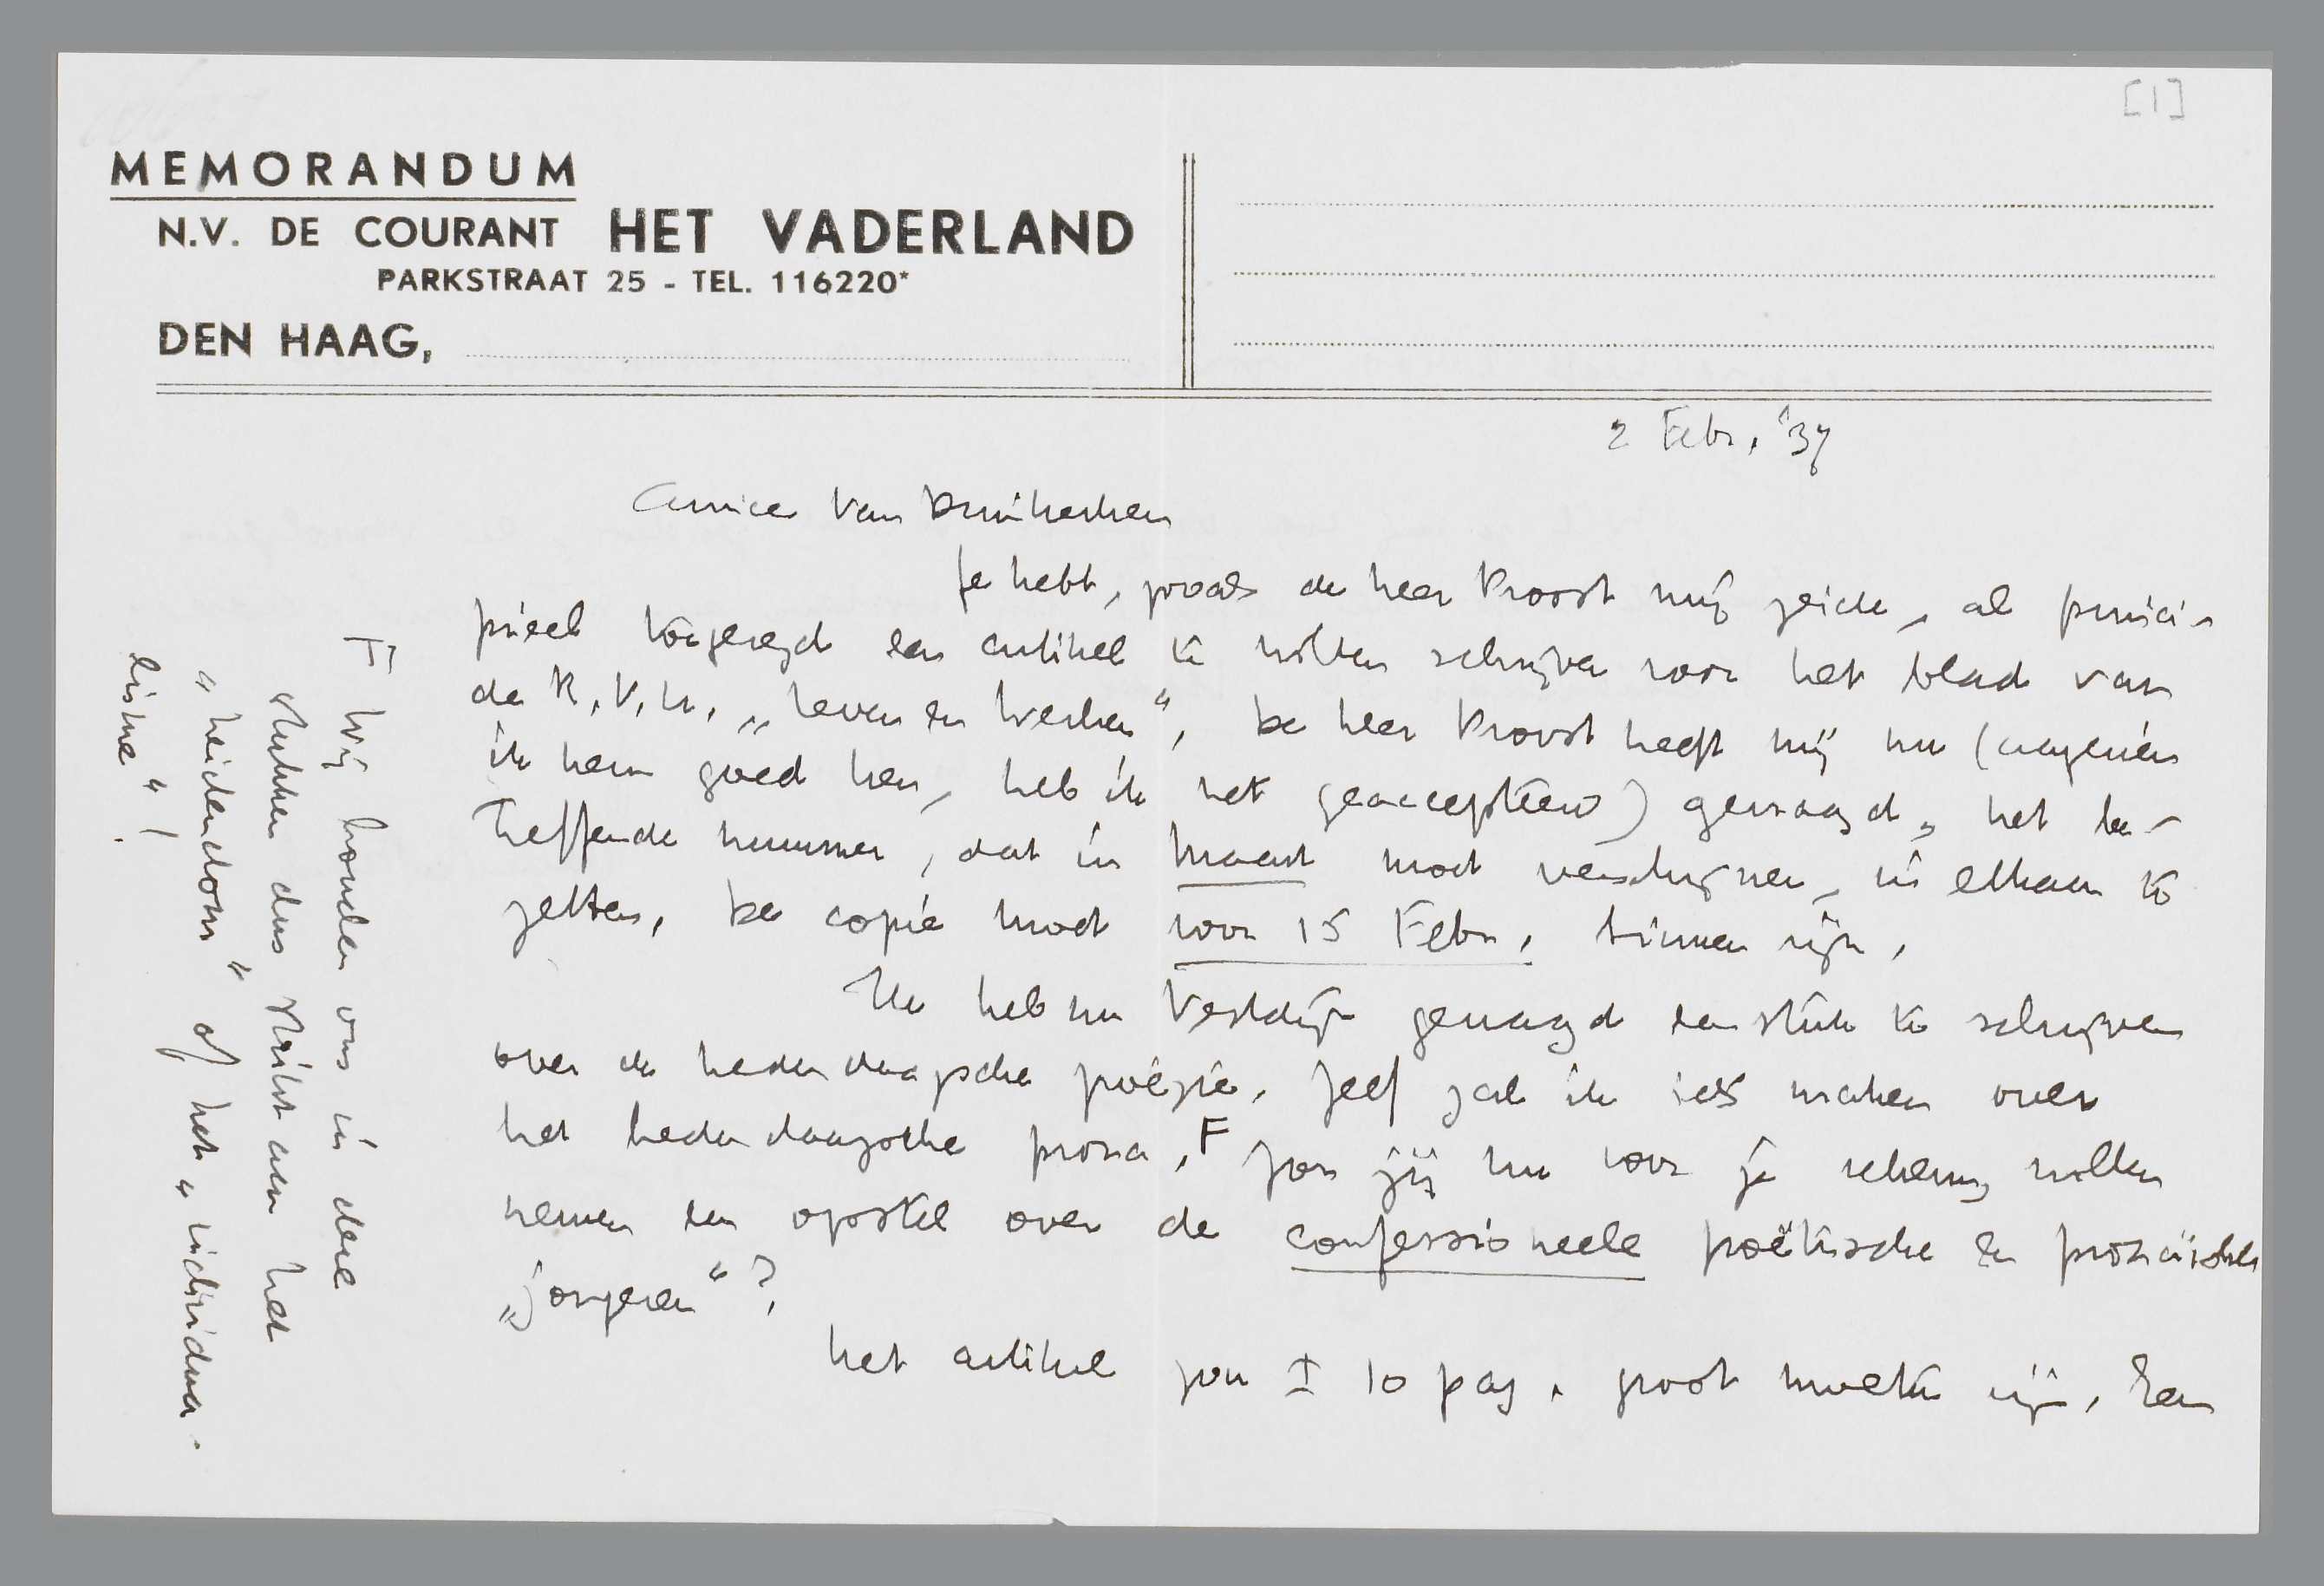 [1]
MEMORANDUM
N.V. DE COURANT HET VADERLAND
PARKSTRAAT 25 - TEL. 116220*
DEN HAAG,
2 Febr. '37
Amice Van Duinkerken
Je hebt, zooals de heer Proost mij zeide, al princi-
pieel toegezegd een artikel te willen schrijven voor het blad van
de R.V.U. „Leven en Werken". De heer Proost heeft mij nu (aangezien
ik hem goed ken, heb ik het geaccepteerd) gevraagd, het be-
treffende nummer, dat in Maart moet verschijnen, in elkaar te
zetten. De copie moet voor 15 Febr. binnen zijn.
Ik heb nu Vestdijk gevraagd een stuk te schrijven
over de hedendaagsche poëzie. Zelf zal ik iets maken over
het hedendaagsche proza. F Zou jij nu voor je rekening willen
nemen een opstel over de confessioneele poëtische en prozaïsche
„jongeren"?
Het artikel zou ± 10 pag. groot moeten zijn. Een
F Wij houden ons in deze
stukken dus strikt aan het
„heidendom" of het „individua-
lisme"!